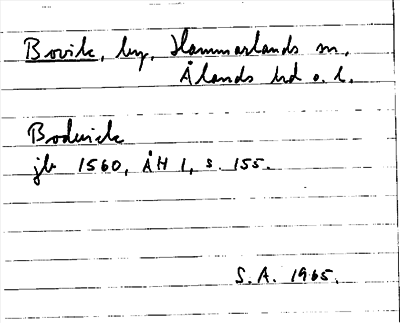 Bovik, by, Hammarlands sn,
Ålands hd o. l.
Bodwick
jb 1560, ÅH 1, s. 155.
S.A. 1965.